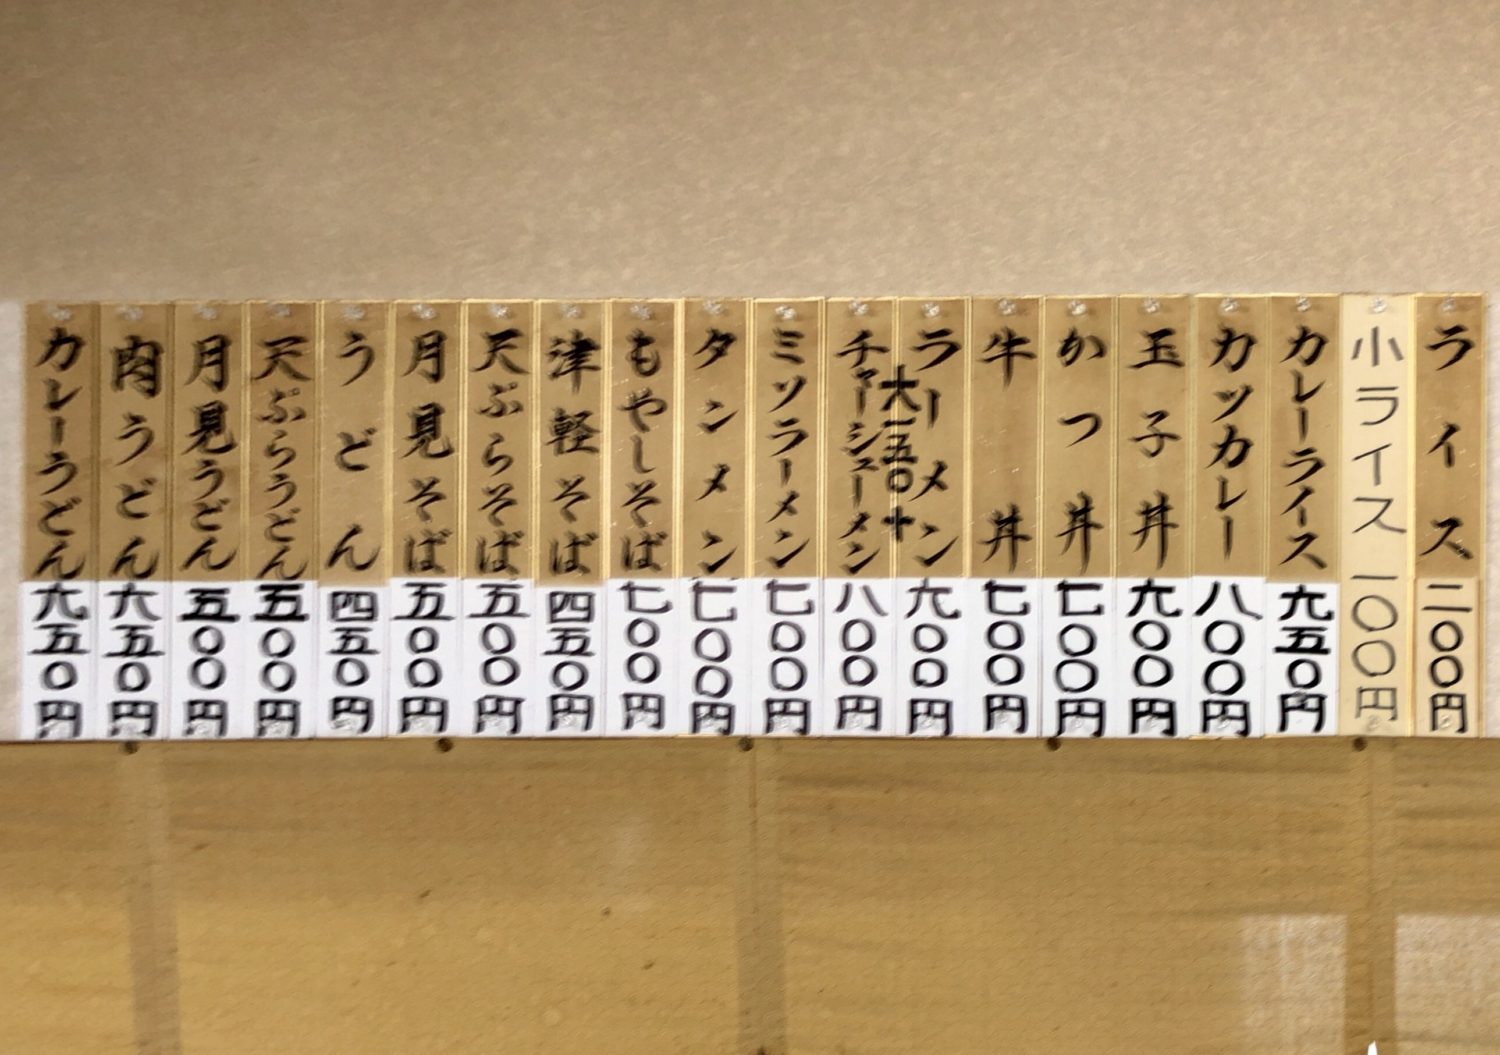 ライス 二〇〇円
小ライス 一〇〇円
カレーライス 九五〇円
カツカレー 八〇〇円
玉子丼 九〇〇円
かつ丼 七〇〇円
牛丼 七〇〇円
ラーメン 九〇〇円
大一五〇十
チャーシューメン 八〇〇円
ミソラーメン 七〇〇円
タンメン 七〇〇円
もやしそば 七〇〇円
津軽そば 四五〇円
天ぷらそば 五〇〇円
月見そば 五〇〇円
うどん 四五〇円
天ぷらうどん 五〇〇円
月見うどん 五〇〇円
肉うどん 六五〇円
カレーうどん 九五〇円